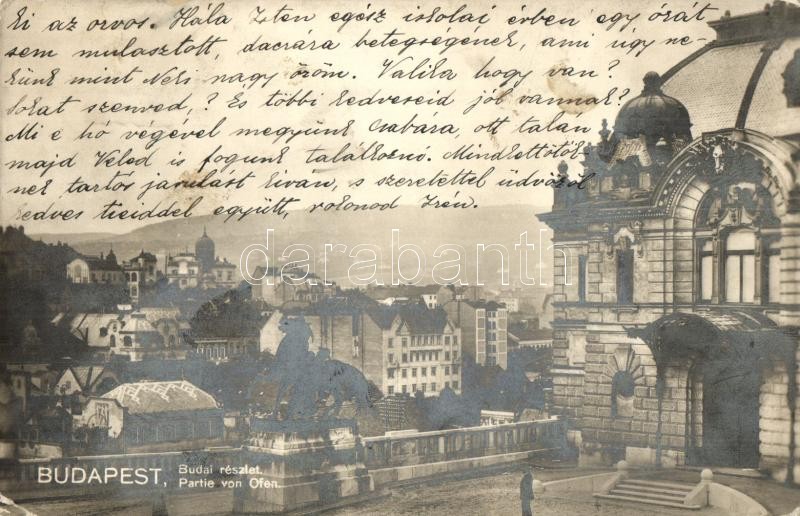 ki az orvos. Hála Isten egész iskolai évben egy órát
sem mulasztott, dacára betegségének, ami úgy ne-
künk mint Neki nagy öröm. Valika hogy van?
Sokat szenved,? És többi kedveseid jól vannak?
Mi e hó végével megyünk Csabára, ott talán
majd Veled is fogunk találkozni. Mindkettőtök-
nek tartós javulást kiván, s szeretettel üdvözöl
kedves tieiddel együtt, rokonod Irén.
darabanth
BUDAPEST, Budai részlet.
Partie von Ofen.